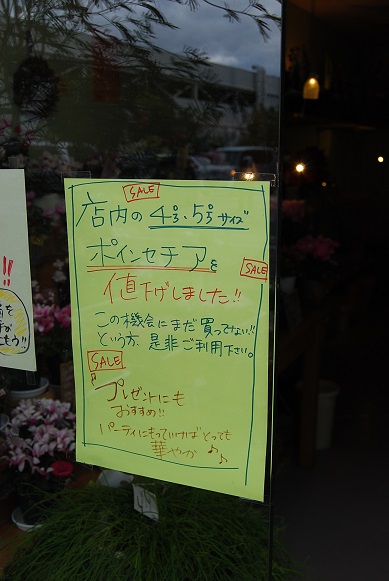 SALE
店内の4号、5号サイズ
ポインセチアを
SALE
値下げしました!!
この機会にまだ買ってない!!
という方、是非ご利用下さい。
SALE
プレゼントにも
おすすめ!!
パーティにもっていけばとっても
華やか♪♪